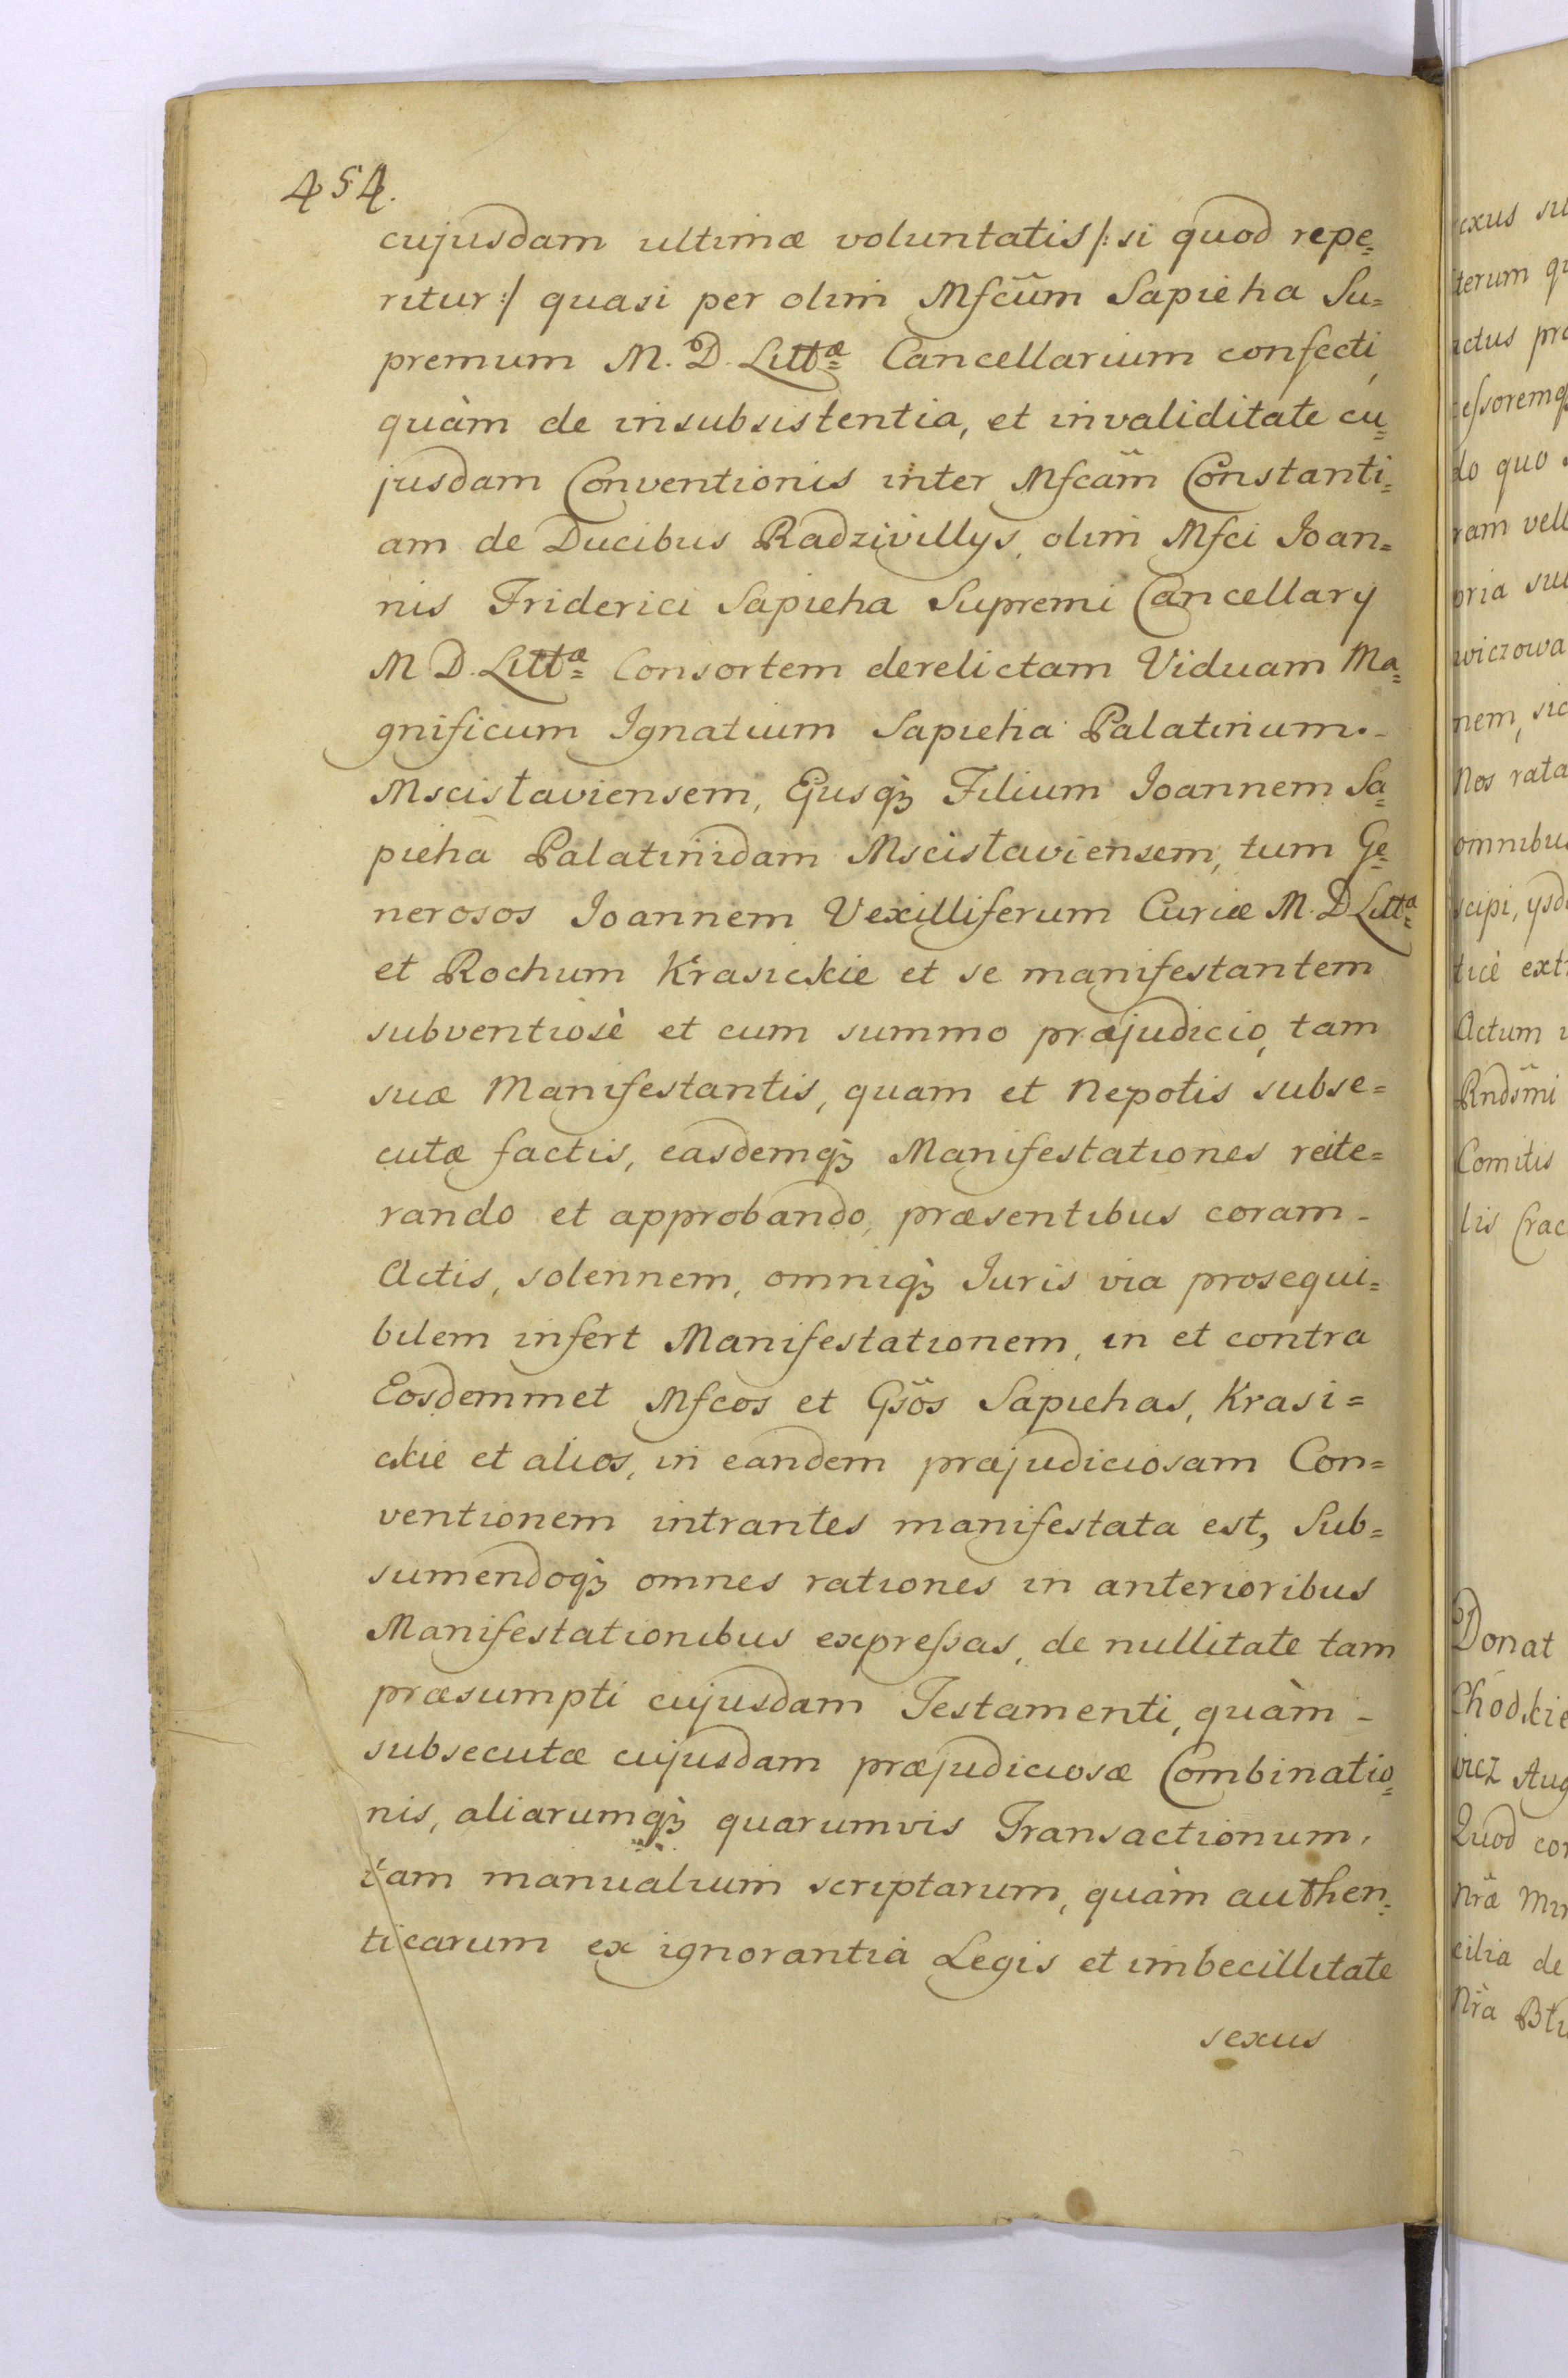 454.
cujusdam ultimæ voluntatis /: si quod repe=
ritur :/ quasi per olim Mfcũm Sapieha Su=
premum M. D. Littæ Cancellarium confecti,
quàm de insubsistentia, et invaliditate cu=
jusdam Conventionis inter Mfcam̃ Constanti=
am de Ducibus Radzivillijs, olim Mfci Ioan=
nis Friderici Sapieha Supremi Cancellarij
M D. Littæ Consortem derelictam Viduam Ma=
gnificum Ignatium Sapieha Palatinum.-
Mscislaviensem, Ejusqȝ Filium Ioannem Sa=
pieha Palatinidam Mscislaviensem, tum Ge=
nerosos Ioannem Vexilliferum Curiæ M. D Litta
et Rochum Krasickie et se manifestantem
subventiosè et cum summo præjudicio, tam
suæ Manifestantis, quam et Nepotis subse=
cutæ factis, easdemqȝ Manifestationes reite=
rando et approbando, præsentibus coram -
Actis, solennem, omniqȝ Iuris via prosequi=
bilem infert Manifestationem, in et contra
Eosdemmet Mfcos et Gsõs Sapiehas, Krasi=
ckie et alios, in eandem præjudiciosam Con=
ventionem intrantes manifestata est, Sub=
sumendoqȝ omnes rationes in anterioribus
Manifestationibus expressas, de nullitate tam
præsumpti cujusdam Testamenti, quàm -
subsecutæ cujusdam præjudiciosæ Combinatio=
nis, aliarumqȝ quarumvis Transactionum,
tam manualium scriptarum, quàm authen=
ticarum ex ignorantia Legis et imbecillitate
sexus
exus
terum
pro
do quo
ram
wiczowa
nem, sic
Nos rata
omnibus
scipi,
ticè
Actum
Rndsm̃i
Comitis
lis Crac
Donat
Chodkie
vicz Aug
Quod
Nrã
cilia de
Nrã